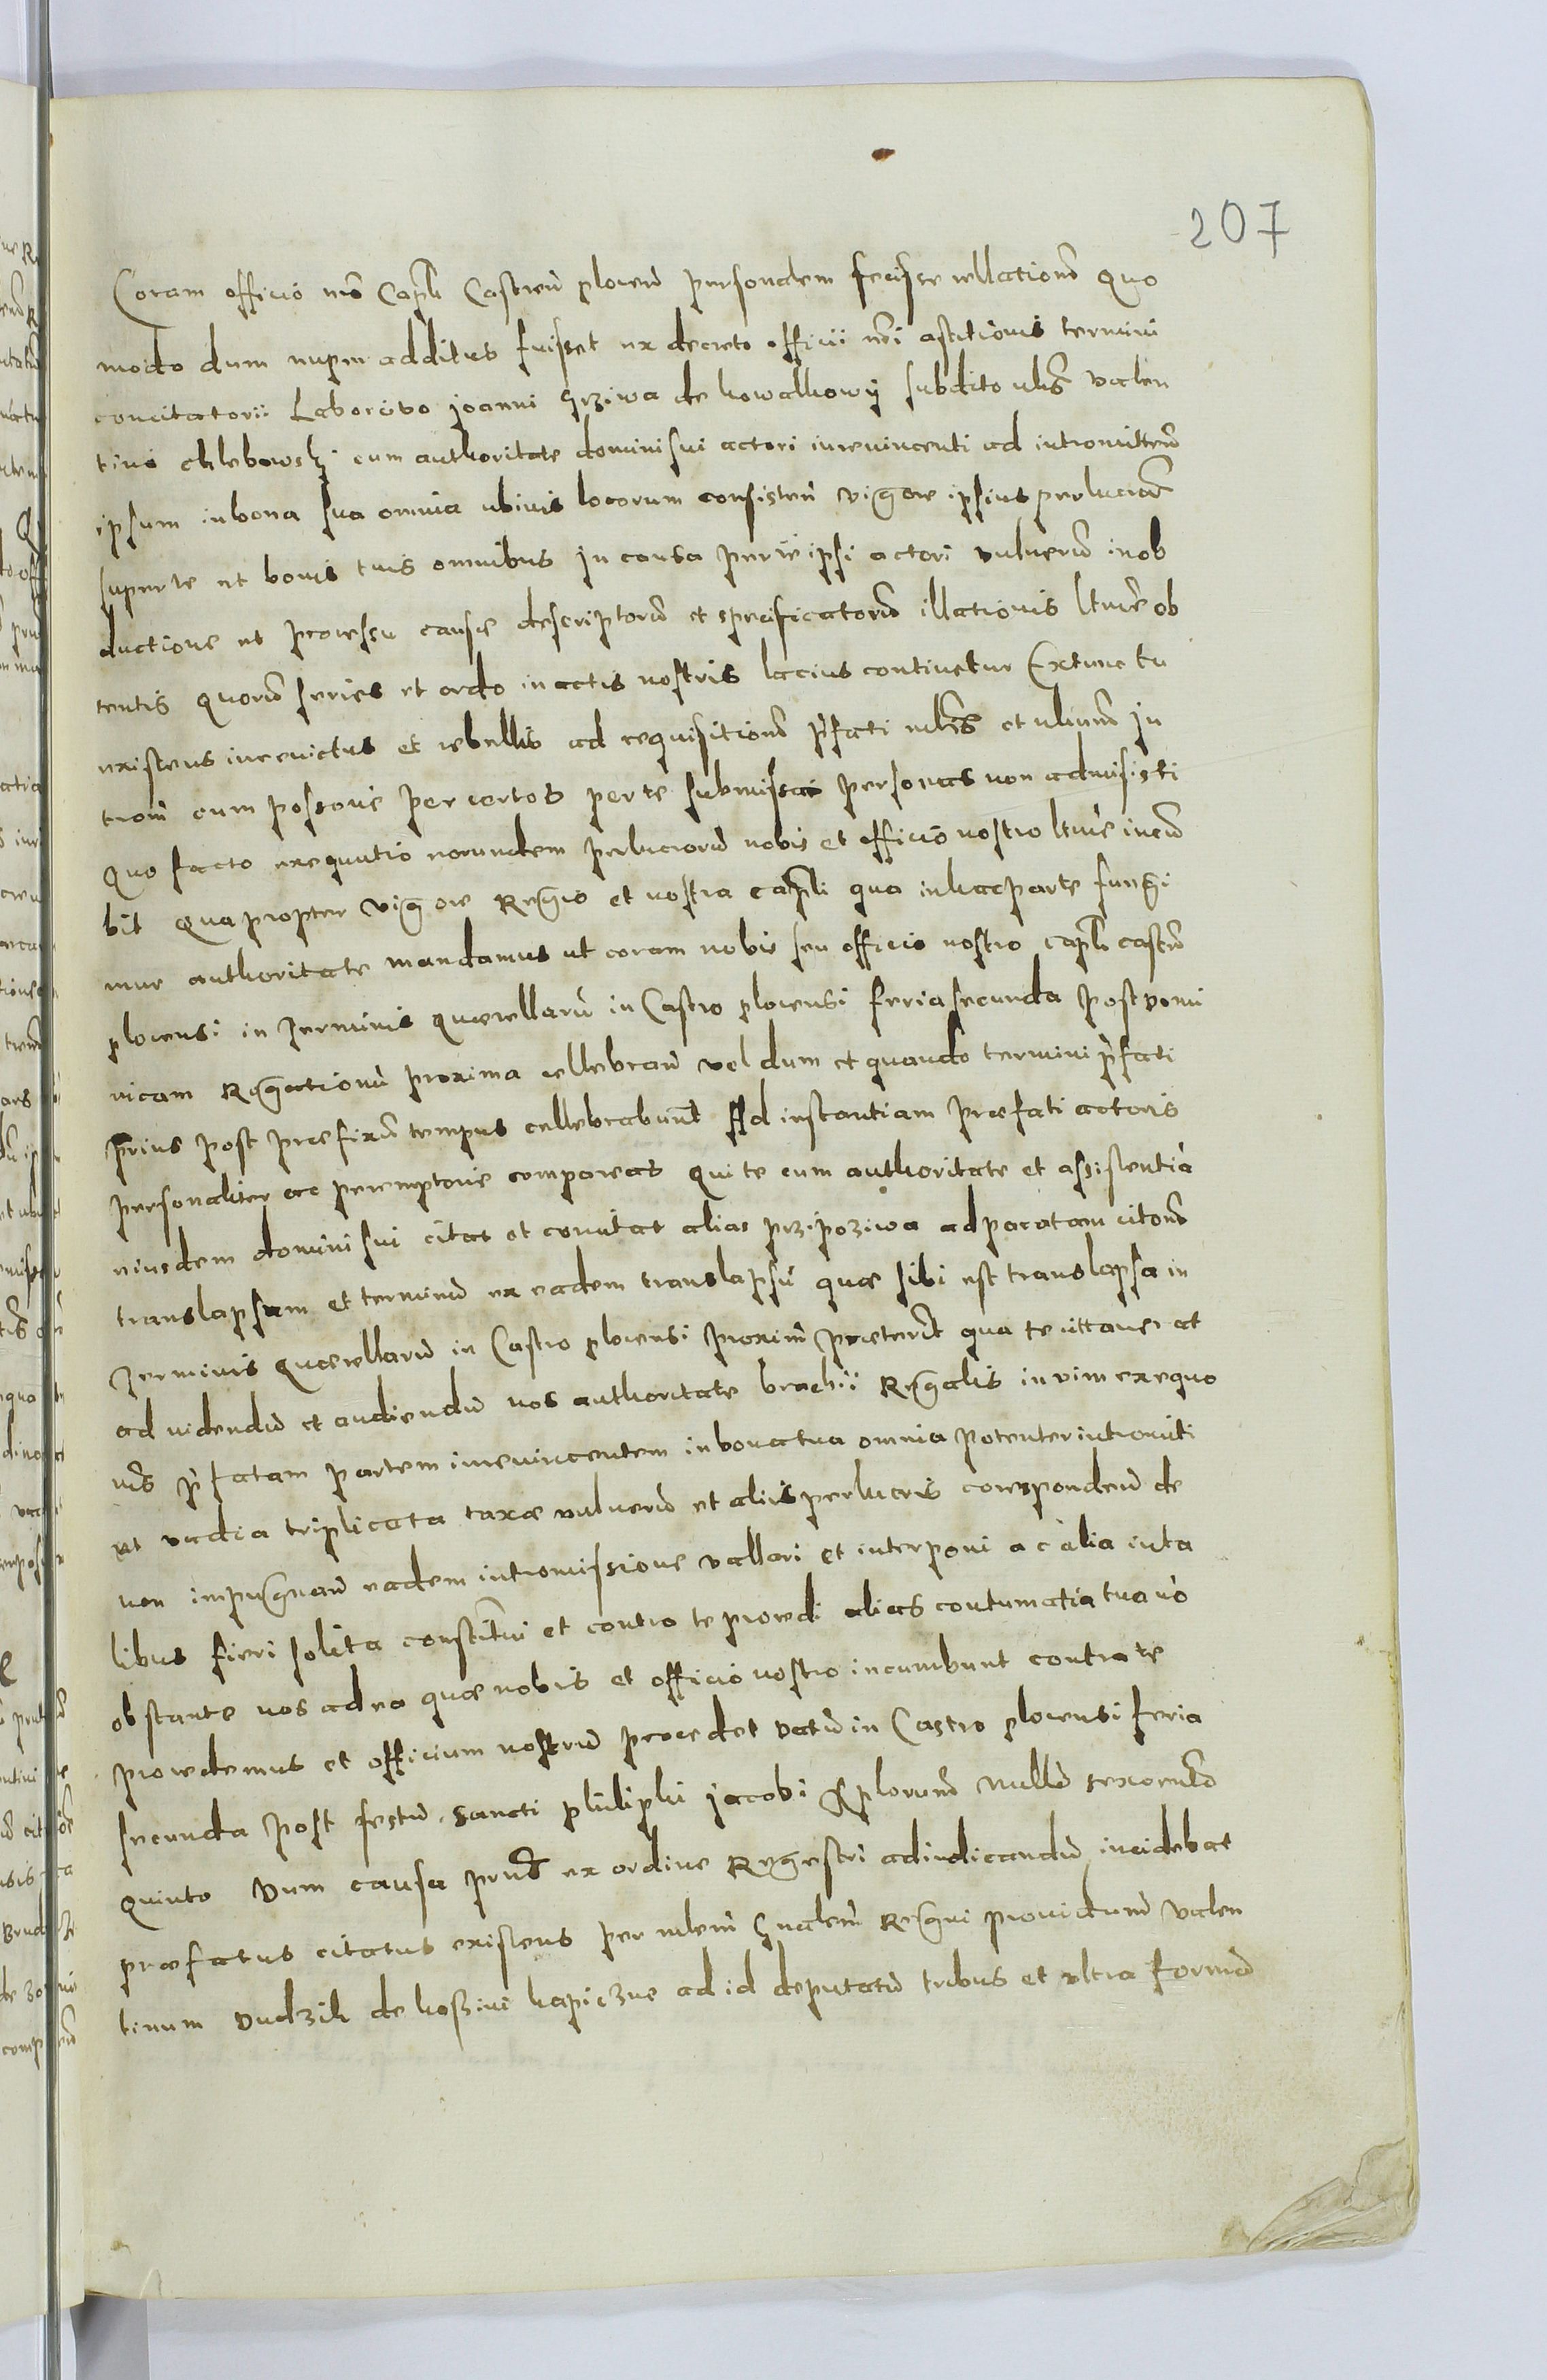 207
Coram officio nrō Capli Castreñ ploceñ personalem fecisse rellationē Quo
modo dum nuper additus fuisset ex decreto officii nri actitionis termini
concitatorii Laborioso joanni Grziwa de kowalkowy subdito nblis valen
tini chlebowskj cum authoritate domini sui actori inrevincenti ad intromitteñ
ipsum in bona sua omnia ubivis locorum consisteñ vigore ipsius perlucror
super te et bonis tuis omnibus in causa per te ipsi actori vulnerū in ob
ductione et processu causæ descriptorū et specificatorū illationis ltime ob
tentis Quorū series et ordo in actis nostris lacius continetur Extunc tu
existens inrevictus et rebellis ad requisitionē p̃fati nblis et
trom cum possone per certos per te submissas personas non admisisti
Quo facto exequutio eorundem perlucrorū nobis et officio nostro ltime incū
bit Qua propter vigore Regio et nostra capli qua in hac parte fungi
mur authoritate mandamus ut coram nobis seu officio nostro capli castreñ
plocensi in Terminis quærellarū in Castro plocensi feria secunda post domi
nicam Rogationū proxima cellebrañ vel dum et quando termini p̃fati
prius post præfixū tempus cellebrabunt Ad instantiam præfati actoris
personaliter ac peremptorie compareas qui te cum authoritate et assistentia
eiusdem domini sui citat et concitat alias przipoziwa ad paratam citonē
translapsam et terminū ex eadem translapsū quæ sibi est translapsa in
Terminis quærellarū in Castro plocensi proxim præterit qua te cittaverat
ad videndū et audiendū nos authoritate brachii Regalis in vim exequo
nis p̃fatam partem inrevincentem in bona tua omnia potenter intromiti
et vadia triplicata taxæ vulnerū et aliis perlucris correspondeñ de
non impugnañ eadem intromissione vallari et interponi ac alia in ta
libus fieri solita constitui et contra te procedi alias contumatia tua nō
obstante nos ad ea quæ nobis et officio nostro incumbunt contra te
procedemus et officium nostrū procedet Datū in Castro plocensi feria
secunda post festū Sancti philiphi jacobi Aplorum Millō sexcentō
Quinto Dum causa prns ex ordine Regestri adiudicandū incidebat
præfatus citatus existens per mlem Gnalem Regni providum valen
tinum Dudzik de koßini kapiczne ad id deputatū tribus et ultra formā